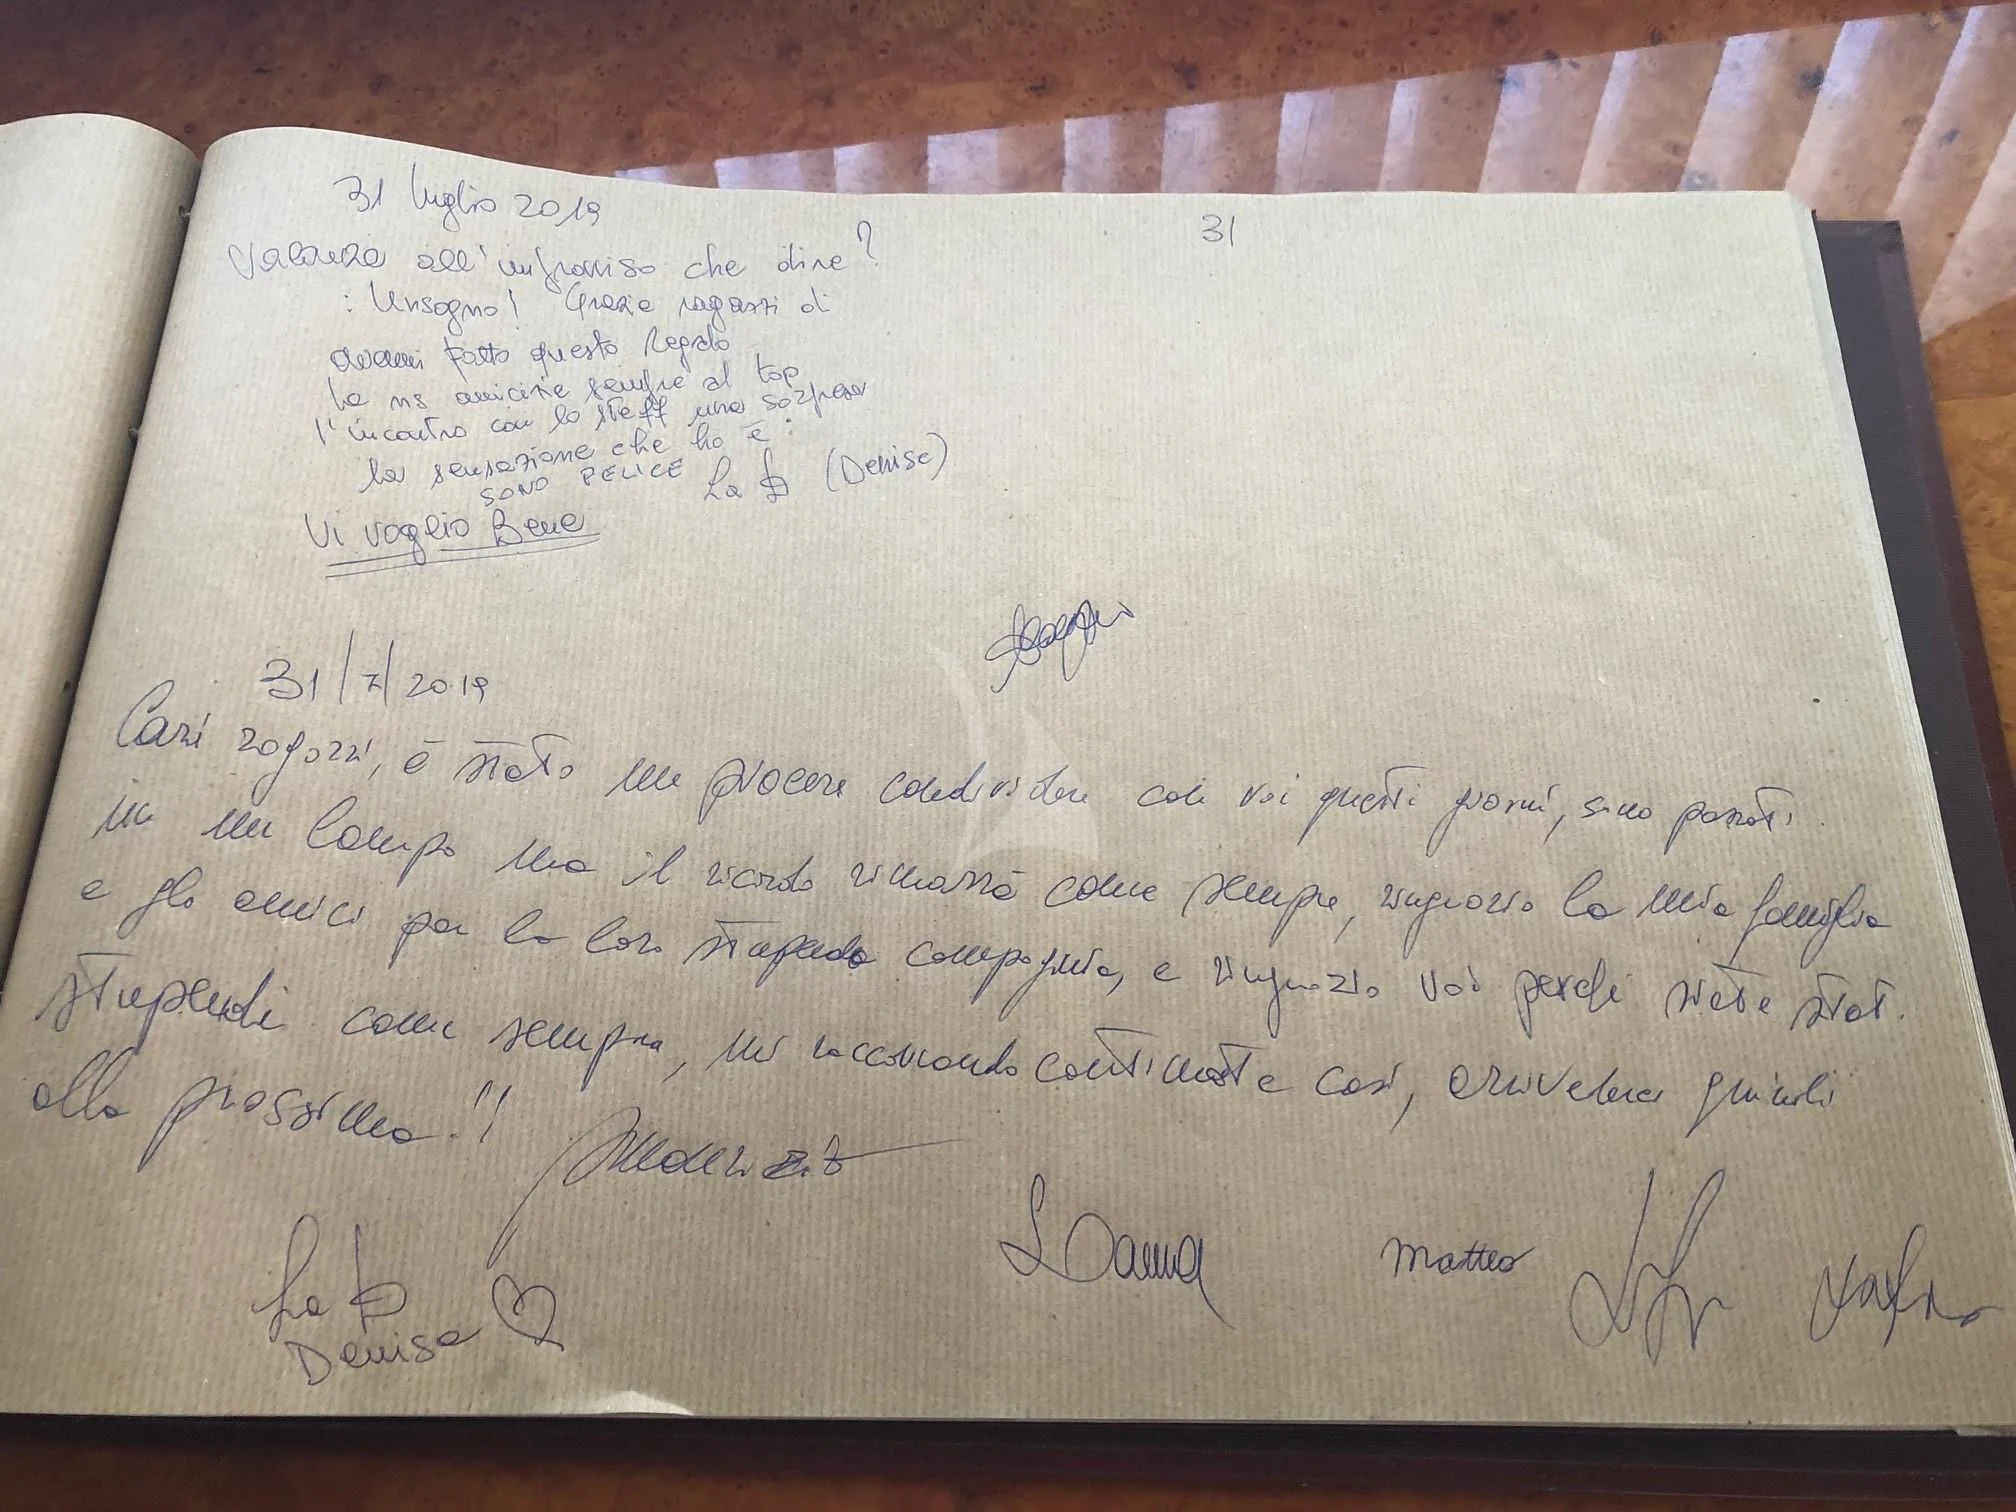 31 luglio 2019
31
Vacanza all'improvviso che dire?
: Un sogno! Grazie ragazzi di
avermi fatto questo Regalo
La ns amicizie sempre al top
l'incontro con lo steff una sorpresa
la sensazione che ho è :
SONO FELICE La D (Denise)
Vi voglio Bene
31/7/2019
Cari ragazzi, è stato un piacere condividere con voi questi giorni, sono passati
in un lampo ma il ricordo rimarrà come sempre, ringrazio la mia famiglia
e gli amici per la loro stupenda compagnia, e ringrazio voi perché siete stati
stupendi come sempre, mi raccomando continuate così, arrivederci quindi
alla prossima!!
La D
Denise
Matteo